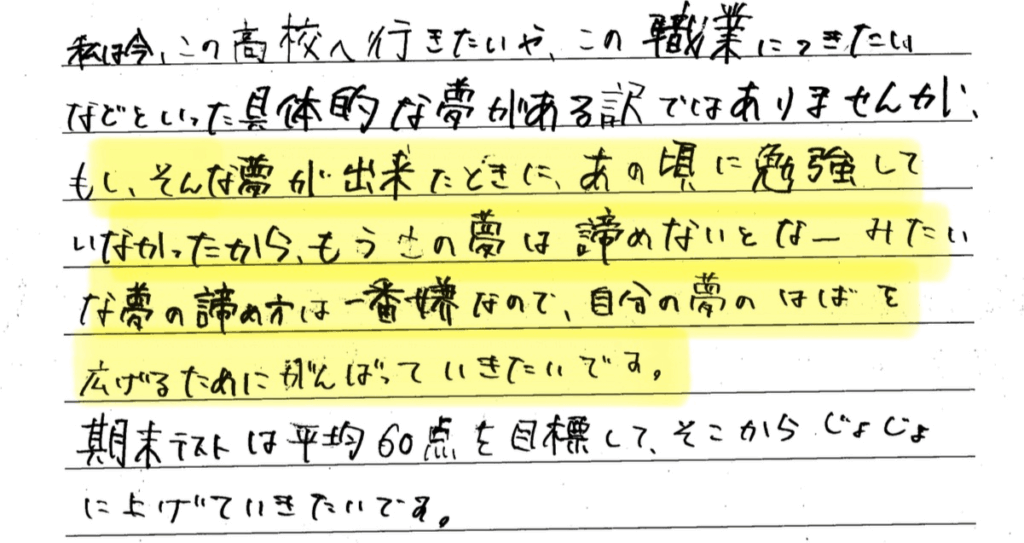 私は今、この高校へ行きたいや、この職業につきたい
などといった具体的な夢がある訳ではありませんが、
もし、そんな夢が出来たときに、あの頃に勉強して
いなかったから、もうこの夢は諦めないとなーみたい
な夢の諦め方は一番嫌なので、自分の夢のはばを
広げるためにがんばっていきたいです。
期末テストは平均60点を目標して、そこからじょじょ
に上げていきたいです。